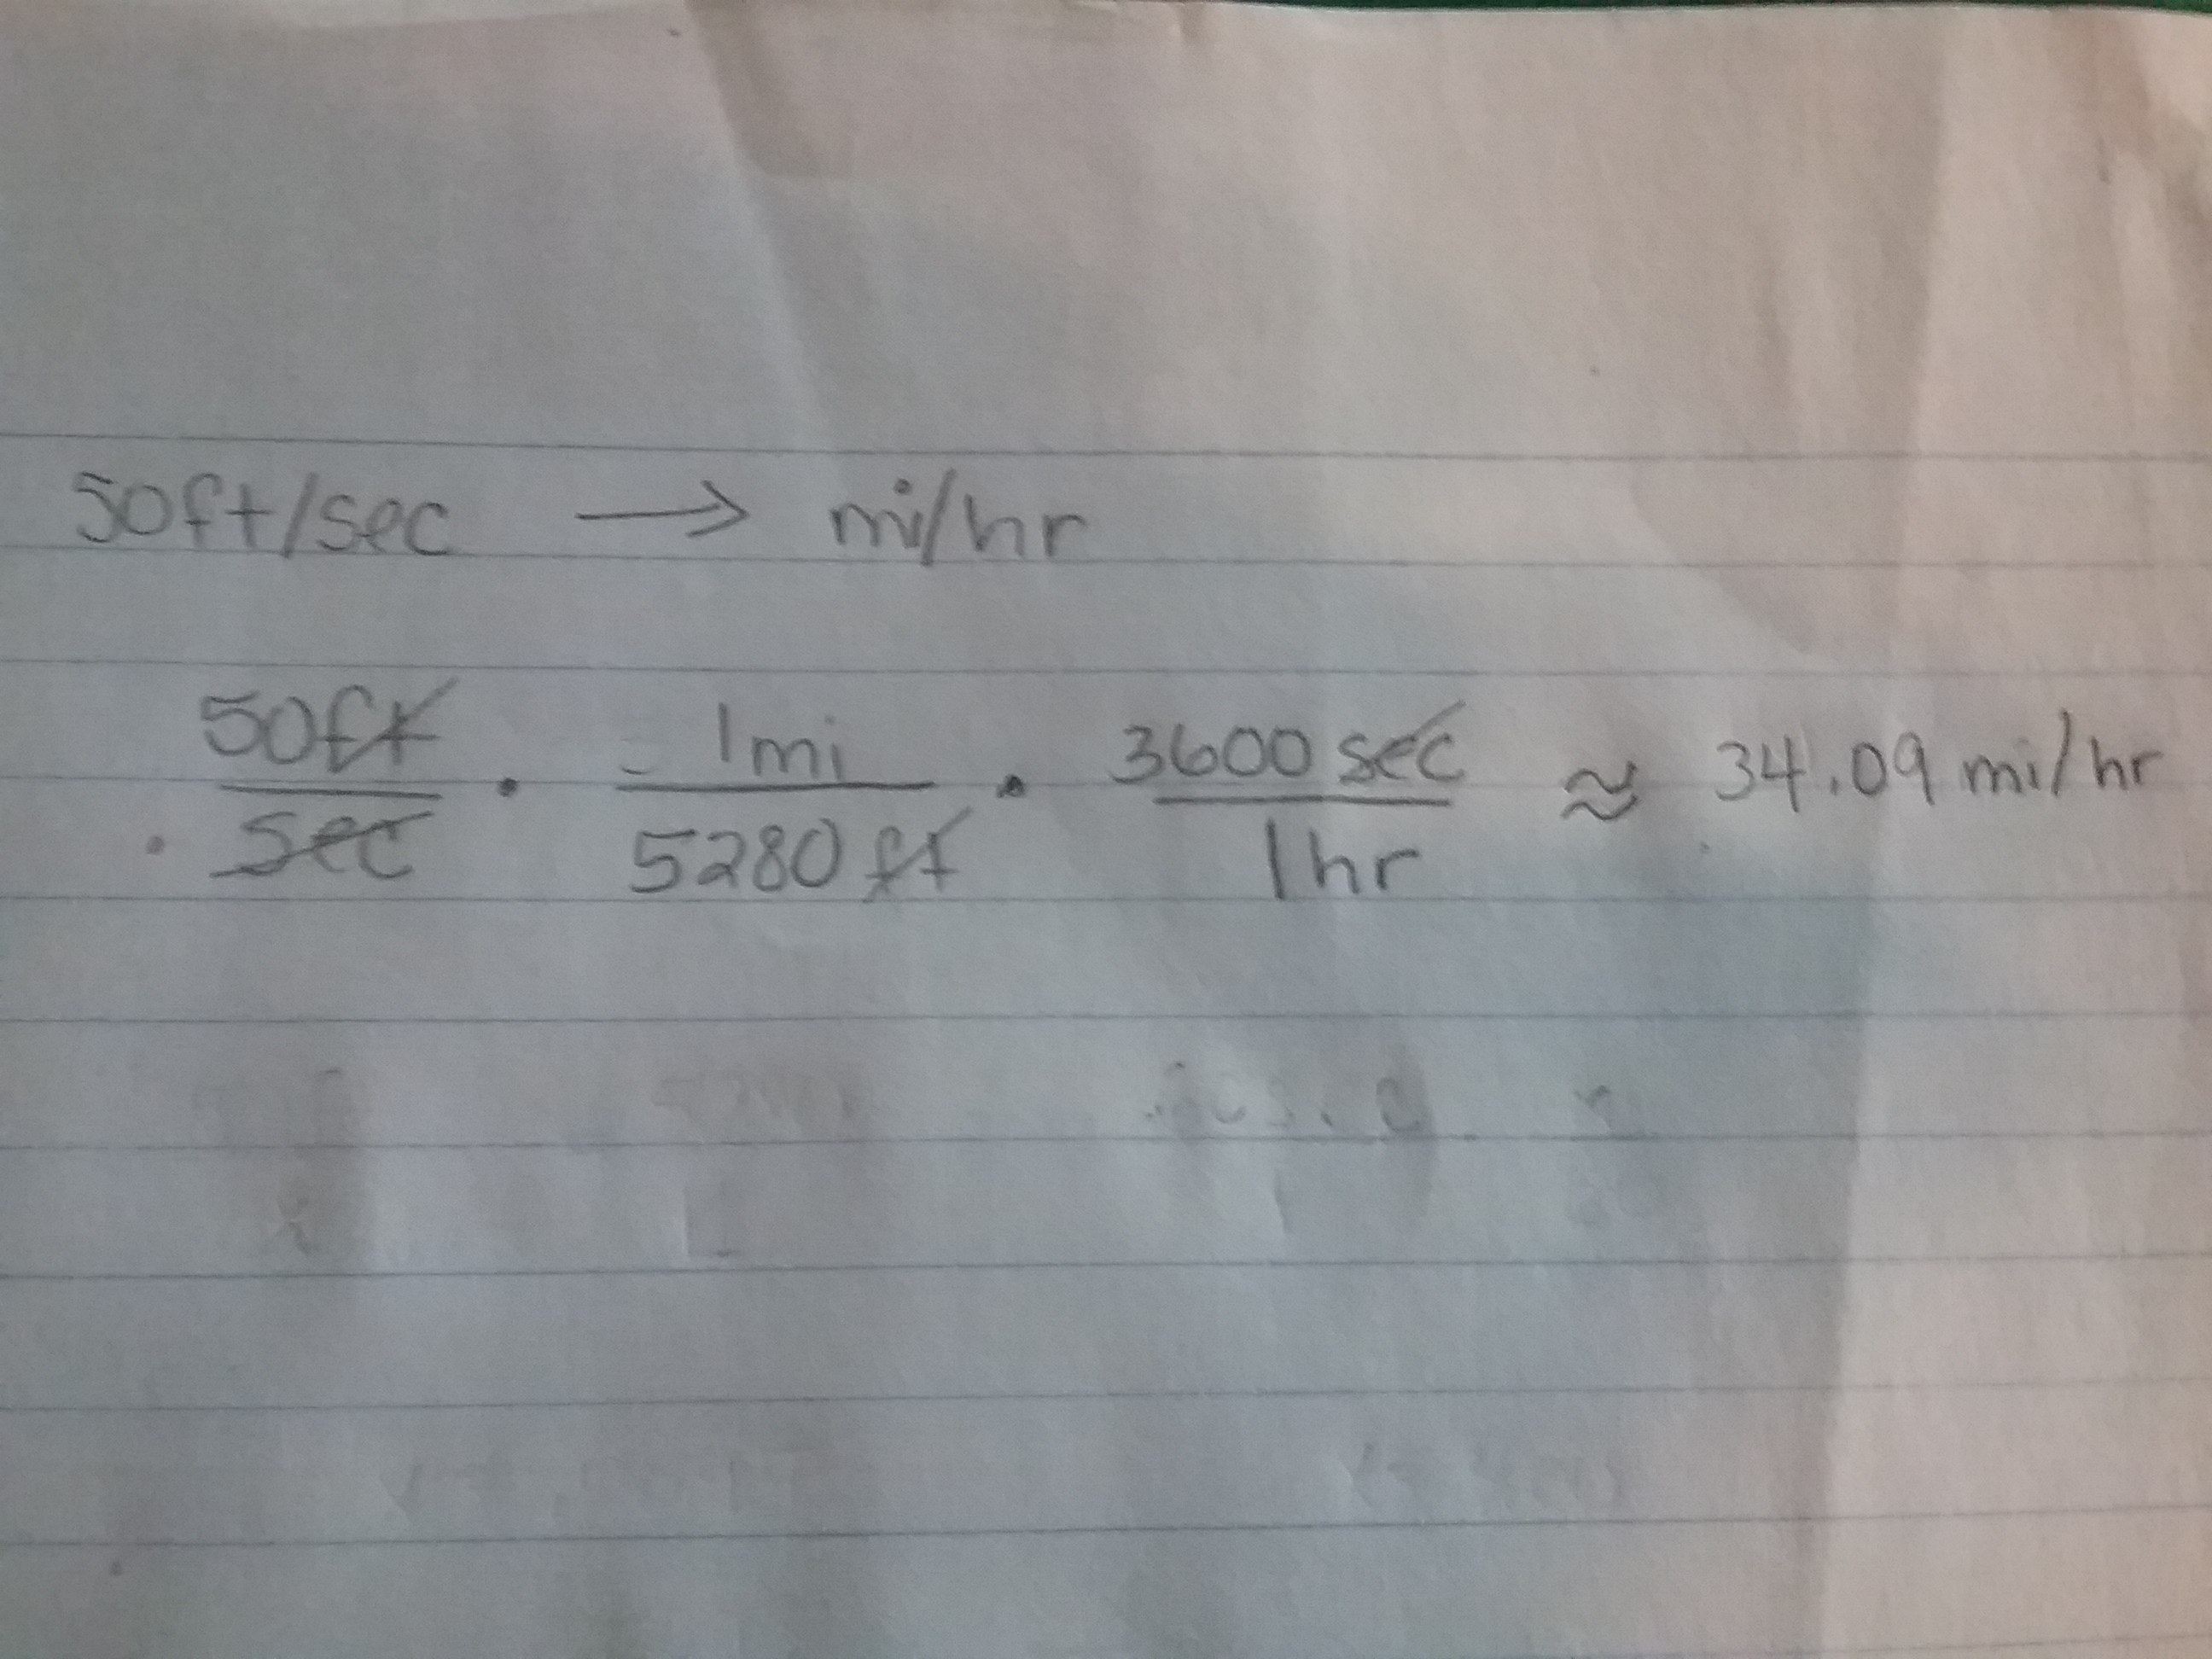 50ft/sec → mi/hr
50ft/sec · 1mi/5280ft · 3600sec/1hr ≈ 34.09 mi/hr